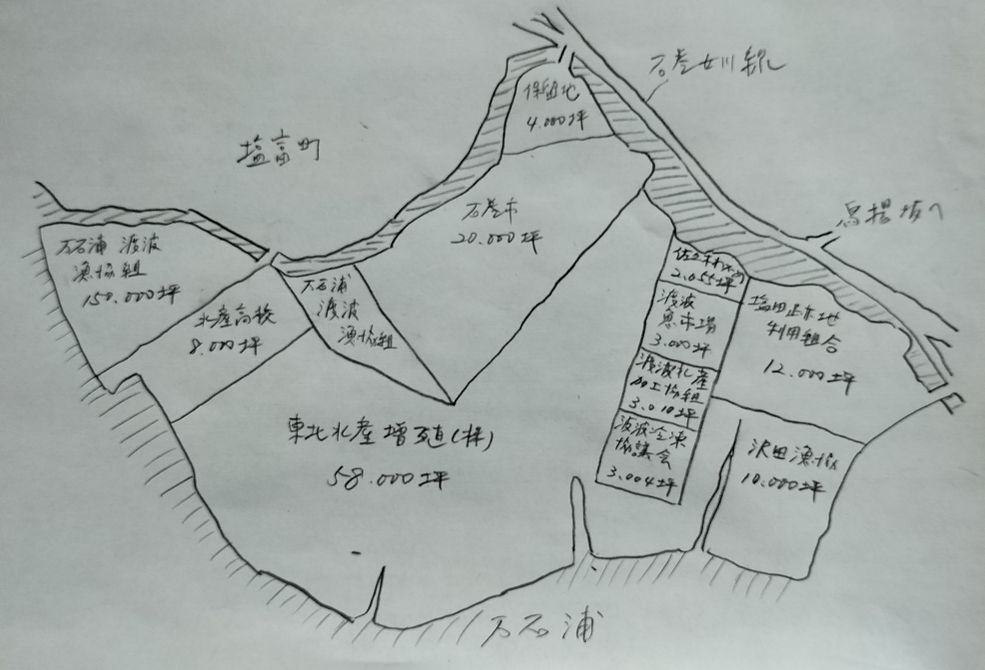 石巻女川線
保留地
4.000坪
塩富町
石巻市
20.000坪
万石浦 渡波
漁協組
150.000坪
水産高校
8.000坪
万石浦
渡波
漁協組
2.055坪
渡波
魚市場
3.000坪
渡波水産
加工協組
3.010坪
渡波冷凍
協議会
3.004坪
利用組合
12.000坪
沢田漁協
10.000坪
東北水産増殖(株)
58.000坪
万石浦